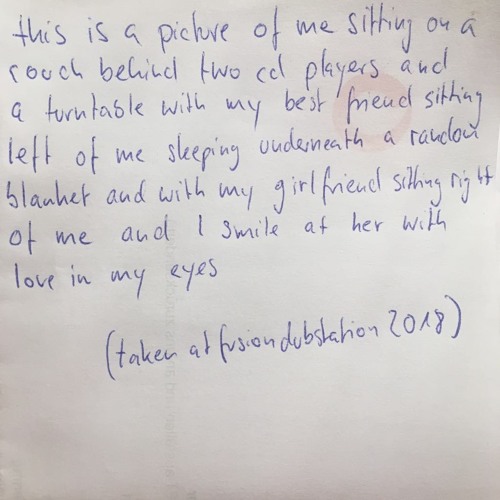 this is a picture of me sitting on a
couch behind two cd players and
a turntable with my best friend sitting
left of me sleeping underneath a random
blanket and with my girlfriend sitting right
of me and I smile at her with
love in my eyes
(taken at fusion dubstation 2018)